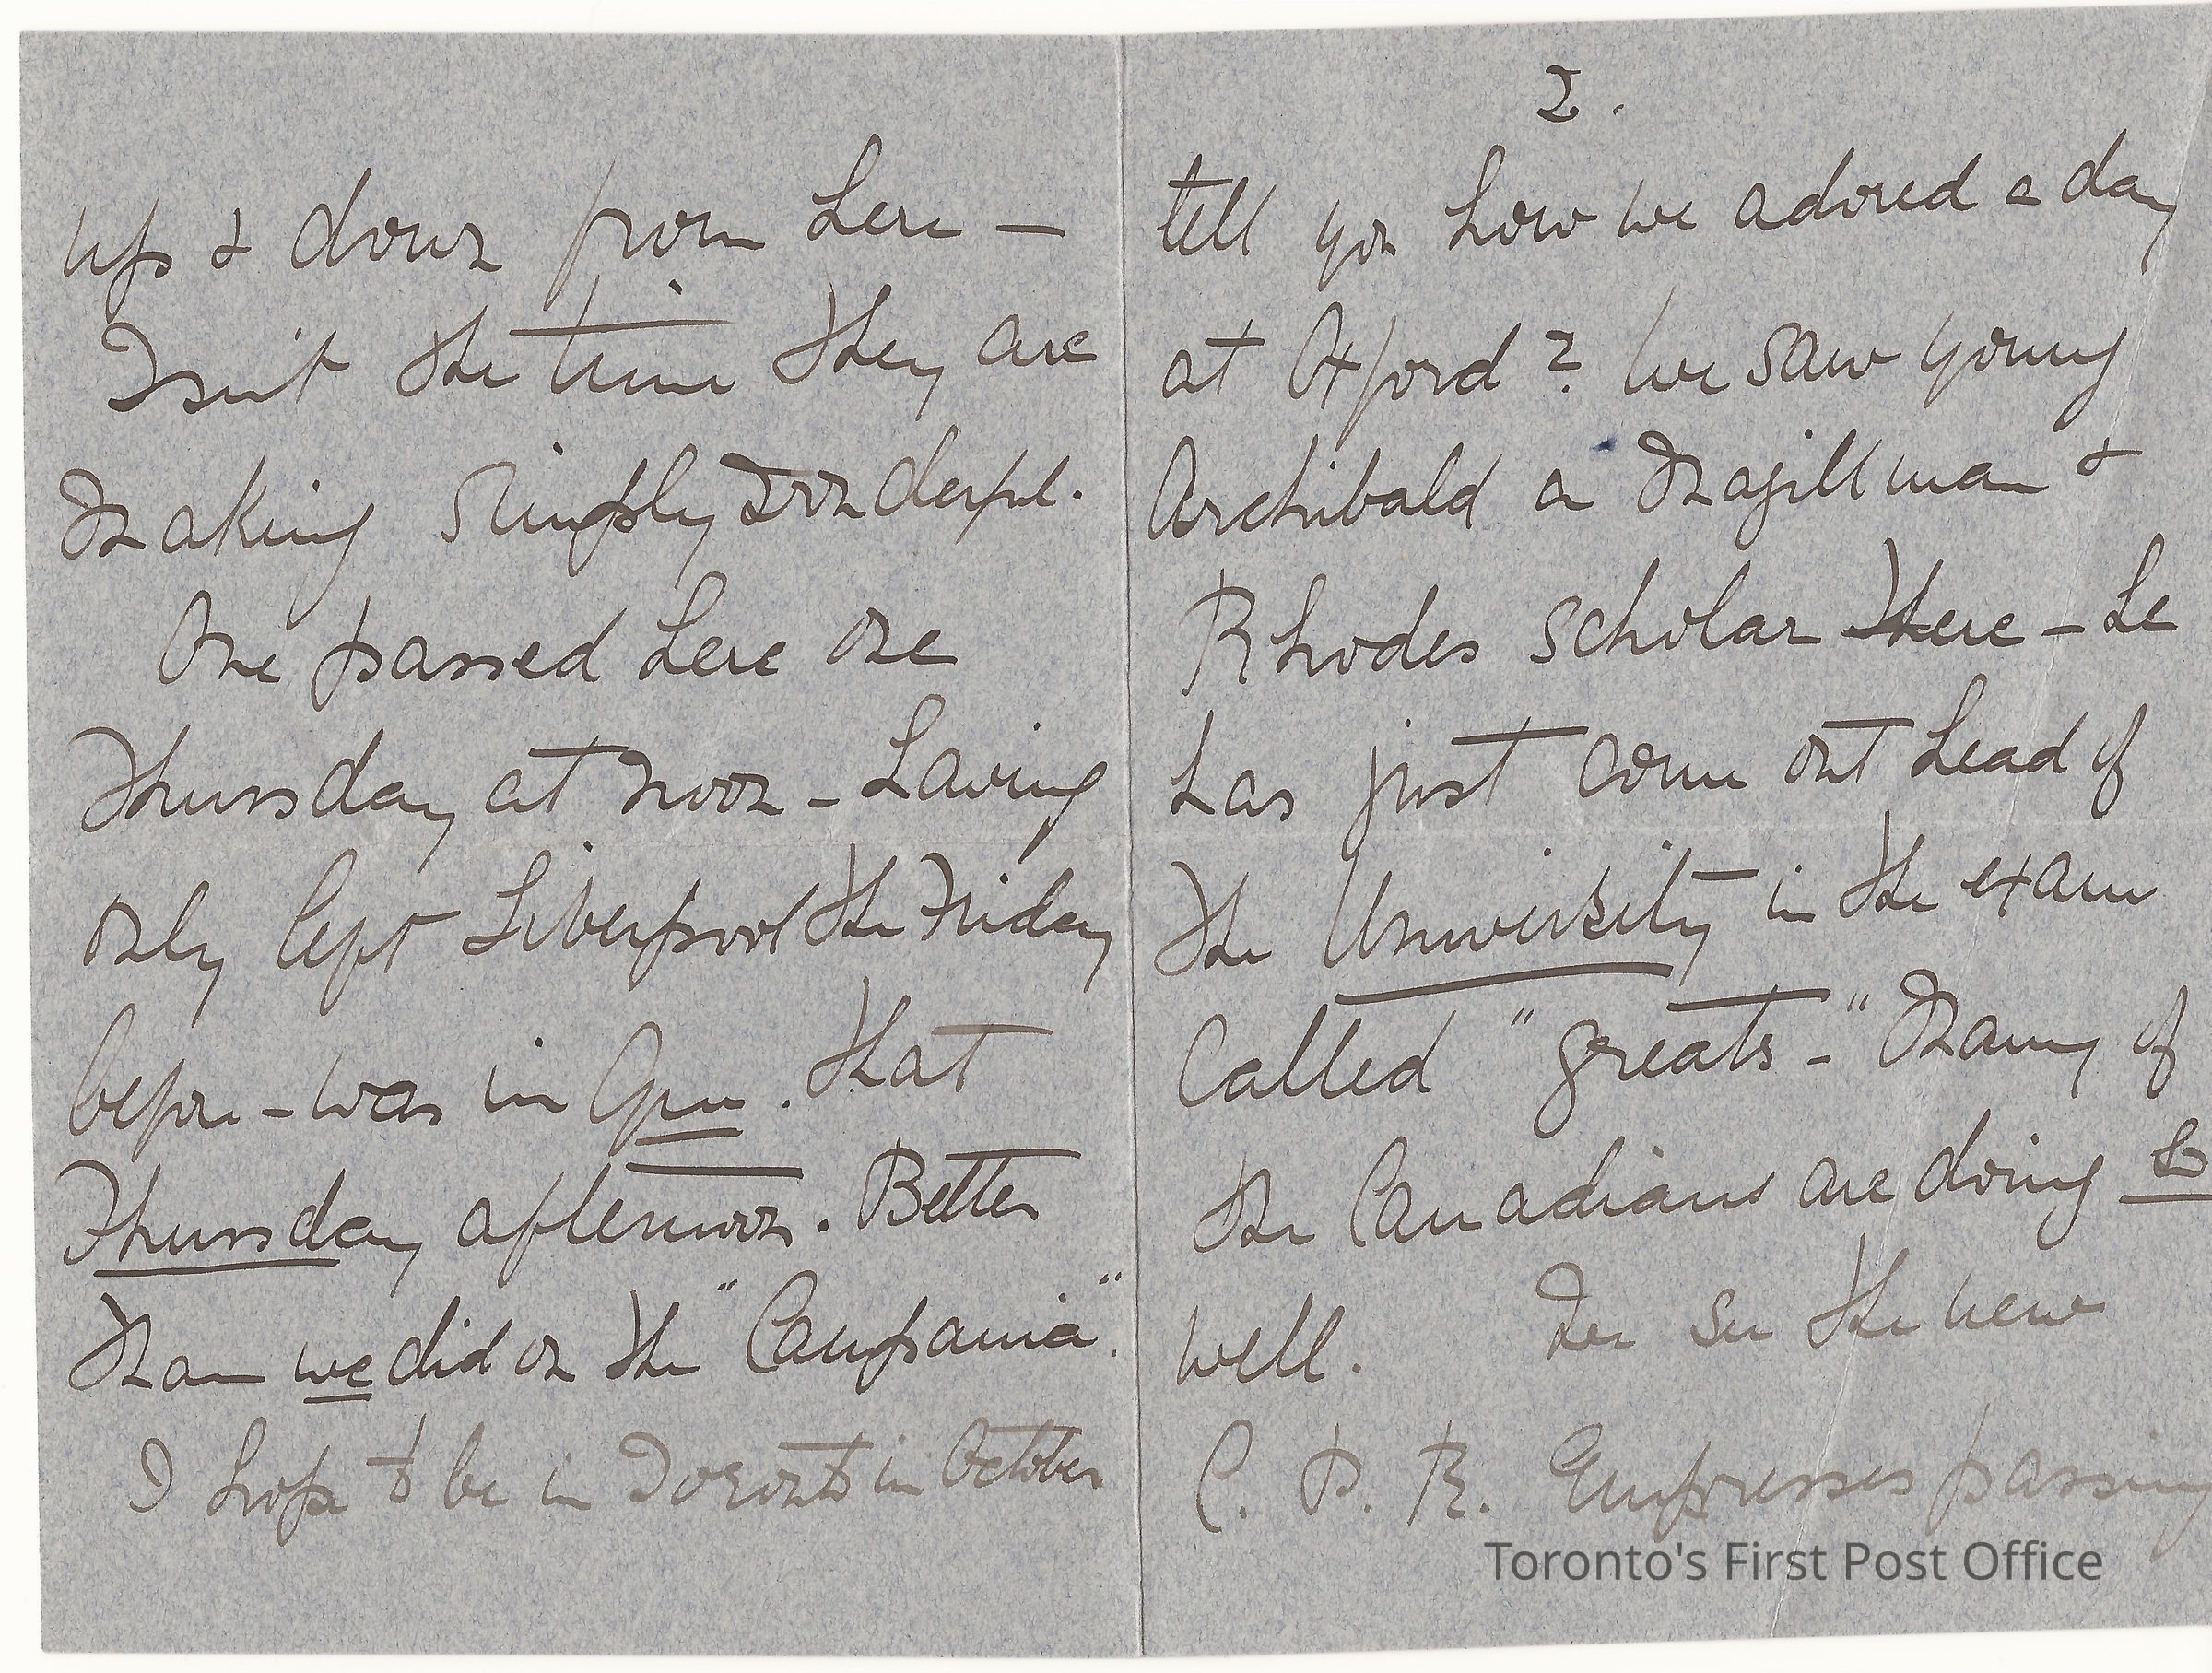 up & down from here –
Isn't the time they are
making simply wonderful.
One passed here one
Thursday at noon – having
only left Liverpool the Friday
before – was in Que. that
Thursday afternoon. Better
than we did on the "Campania".
I hope to be in Toronto in October
2.
tell you how we adored a day
at Oxford? We saw young
Archibald a Magill man &
Rhodes scholar there – he
has just come out head of
the University in the exam
called "greats –" Many of
the Canadians are doing so
well. We see the new
C. P. R. Empresses passing
Toronto's First Post Office